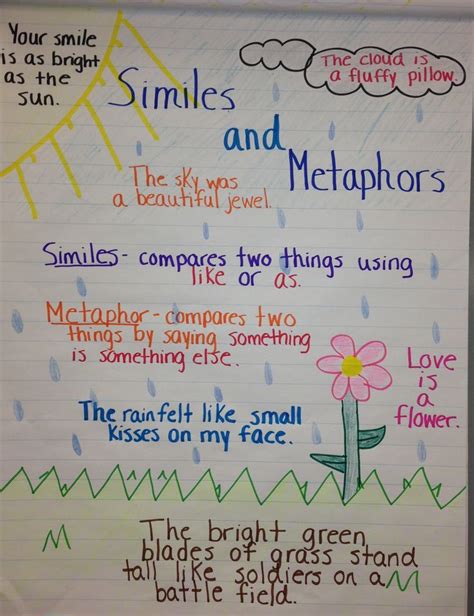 Your smile
is as bright
as the
sun.
The cloud is
a fluffy pillow.
Similes
and
Metaphors
The sky was
a beautiful jewel.
Similes- compares two things using
like or as.
Metaphor - compares two
things by saying something
is something else.
Love
is
a
flower.
The rain felt like small
kisses on my face.
The bright green
blades of grass stand
tall like soldiers on a
battle field.